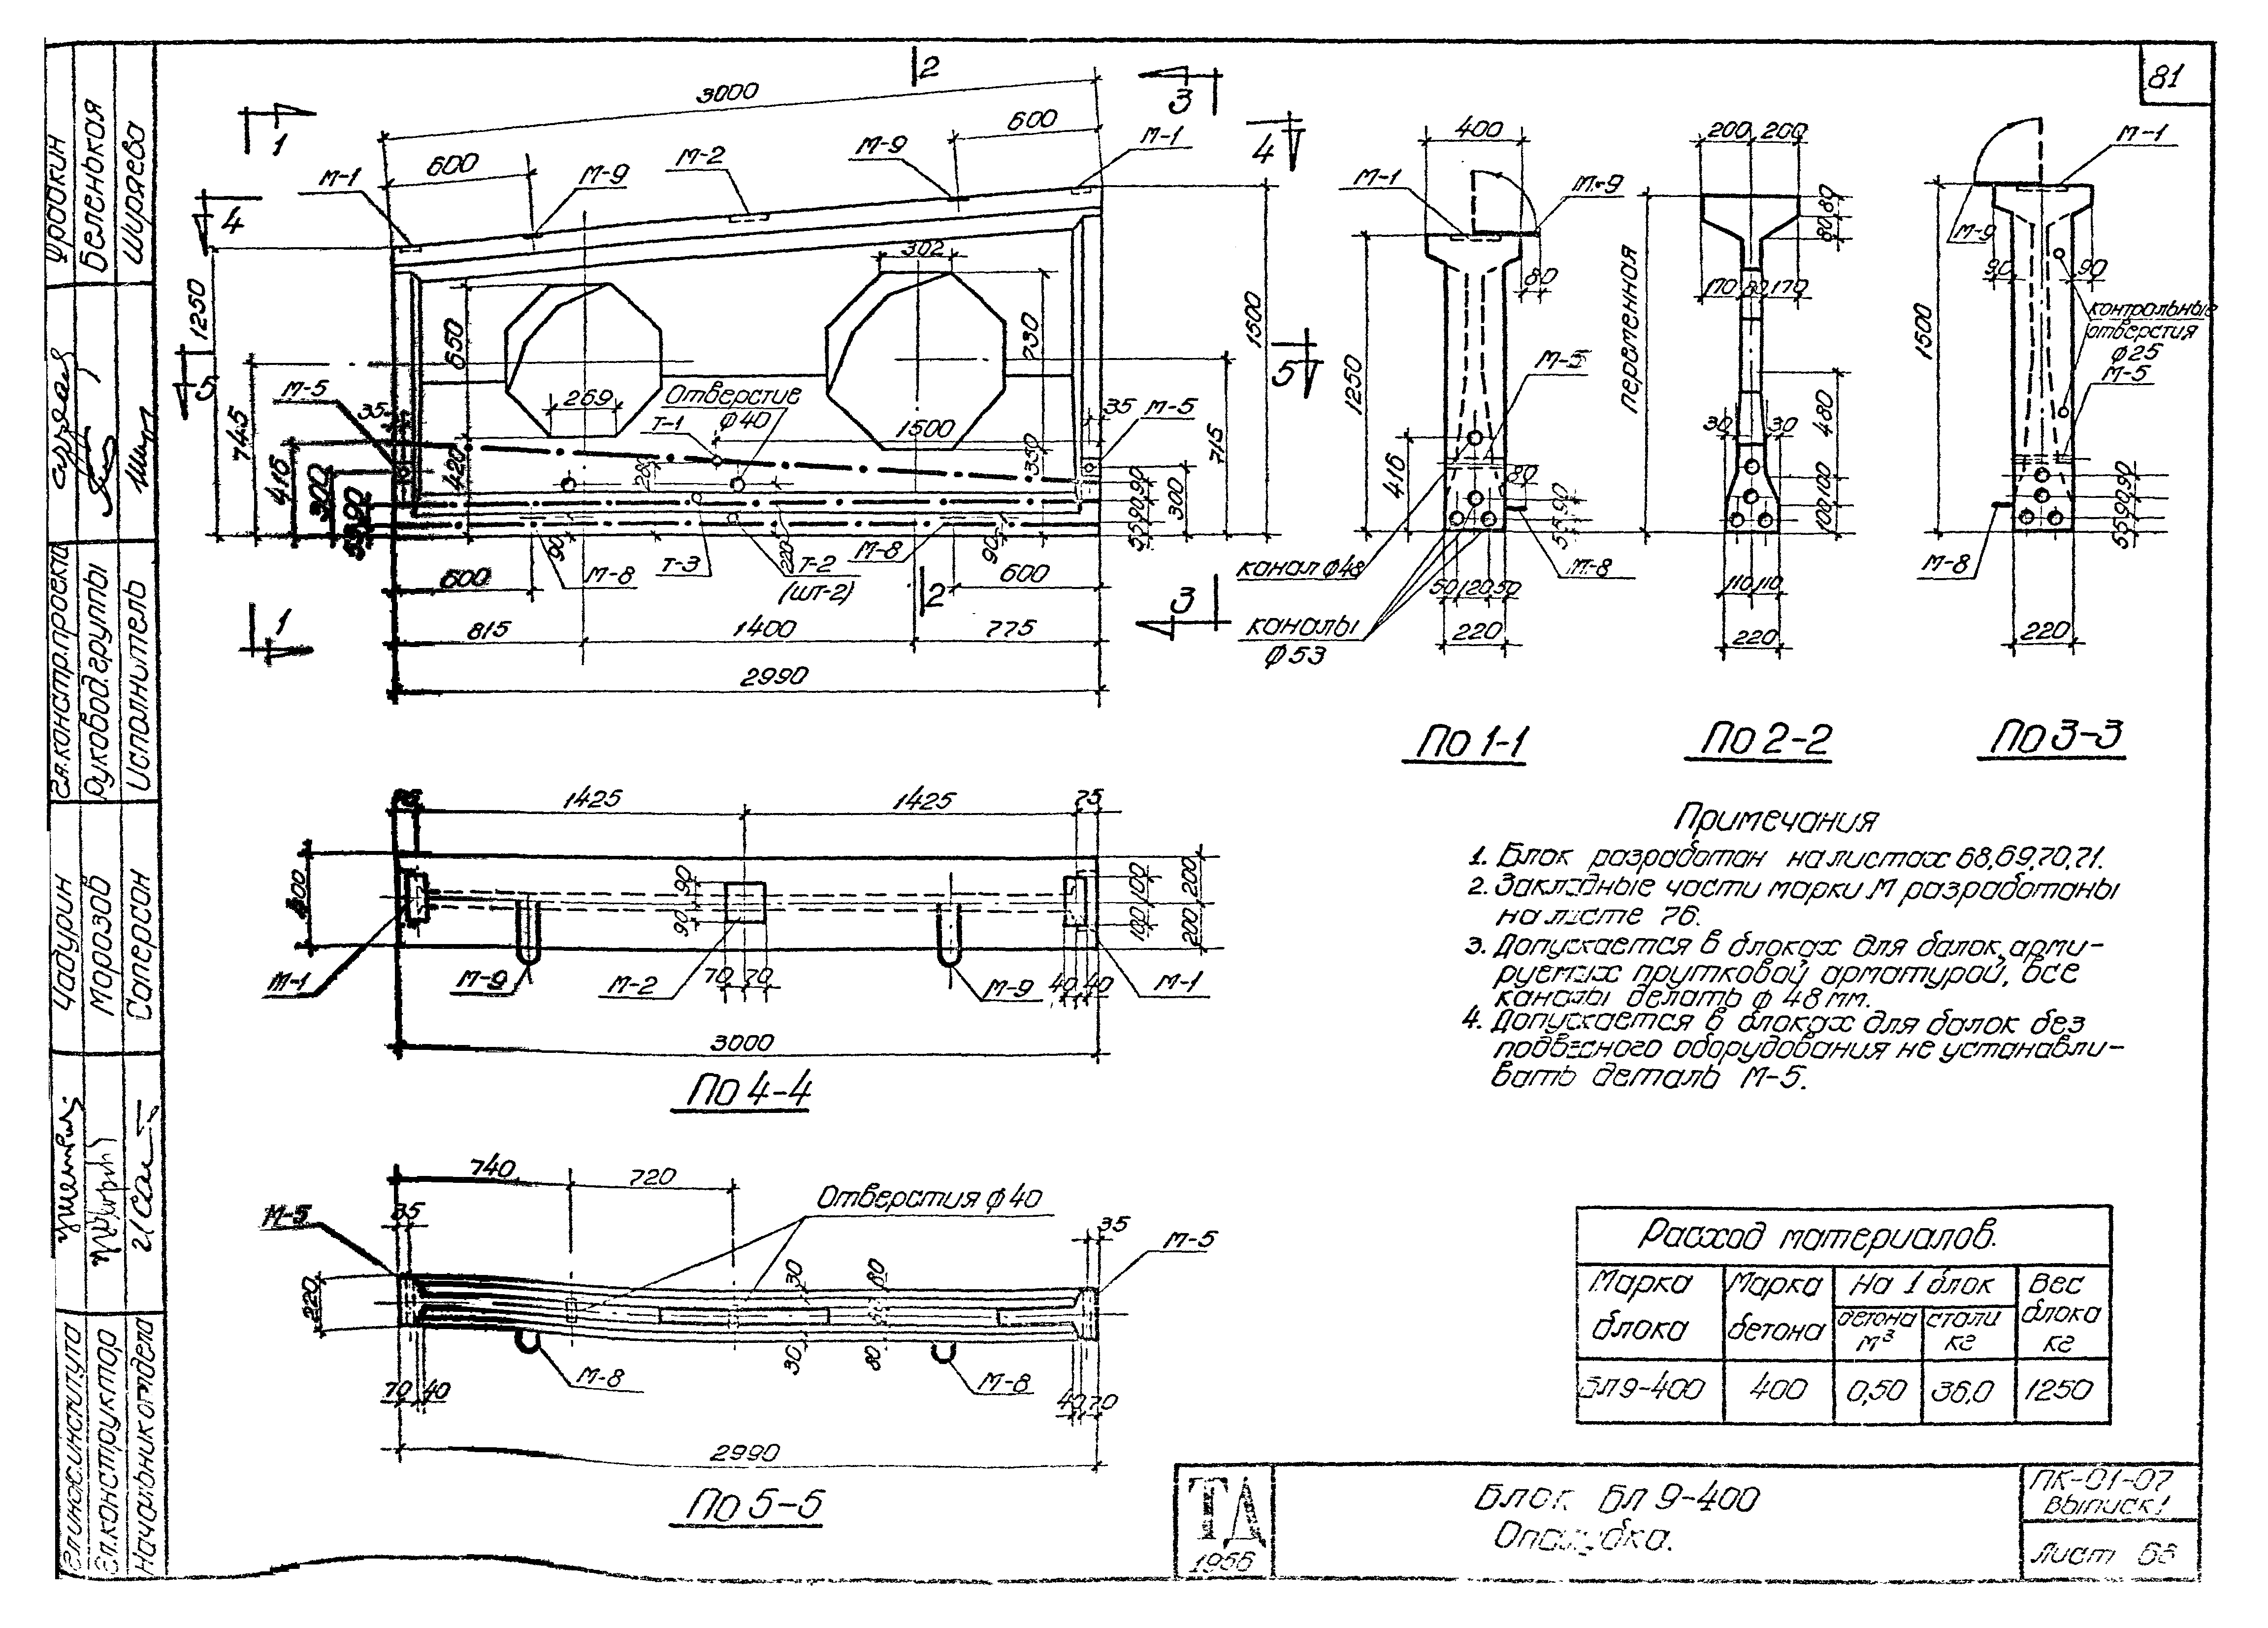 81
3000
600
600
М-1
М-9
М-2
М-9
М-1
1
2
3
4
4
5
5
1250
745
416
300
55 90
М-5
35
650
420
269
302
730
350
Отверстие
ф40
Т-1
1500
35
М-5
280
90
М-8
Т-3
220
Т-2
(шт-2)
М-8
90
55 90 90
300
715
1500
600
600
2
1
3
815
1400
775
2990
400
М-1
М-9
80
1250
М-5
416
80
55 90
М-8
канал ф48
каналы
ф53
50 120 50
220
По 1-1
200 200
переменная
80 80
170 80 170
30
30
480
100 100
110 110
220
По 2-2
М-1
М-9
90
90
1500
контрольные
отверстия
ф25
М-5
55 90 90
М-8
220
По 3-3
75
1425
1425
75
400
90
90
100 100
200 200
М-1
М-9
М-2
70 70
М-9
40 40
М-1
3000
По 4-4
740
720
Отверстия ф40
М-5
35
35
М-5
220
30
80
30
80
М-8
М-8
70 40
40 70
2990
По 5-5
Примечания
1. Блок разработан на листах 68,69,70,71.
2. Закладные части марки М разработаны
на листе 76.
3. Допускается в блоках для балок, арми-
руемых прутковой арматурой, все
каналы делать ф 48 мм.
4. Допускается в блоках для балок без
подвесного оборудования не устанавли-
вать деталь М-5.
Расход материалов.
Марка блока
Марка бетона
На 1 блок
бетона м³
стали кг
Вес блока кг
БЛ9-400 400 0,50 36,0 1250
ТД
1956
Блок БЛ 9-400
Опалубка.
ПК-01-07
выпуск 1
Лист
Гл.инж.института
Гл.конструктор
Начальник отдела
Чадурин
Морозов
Саперсон
Гл.констр.проекта
Руковод.группы
Исполнитель
Беленькая
Ширяева